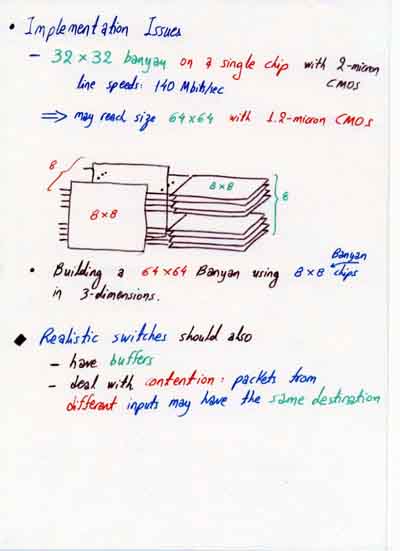 • Implementation Issues
– 32 × 32 banyan on a single chip with 2-micron
CMOS
line speeds: 140 Mbits/sec
⟹ may reach size 64×64 with 1.2-micron CMOS
8
8×8
8
8×8
• Building a 64×64 Banyan using 8×8 Banyan chips
in 3-dimensions.
◆ Realistic switches should also
– have buffers
– deal with contention: packets from
different inputs may have the same destination